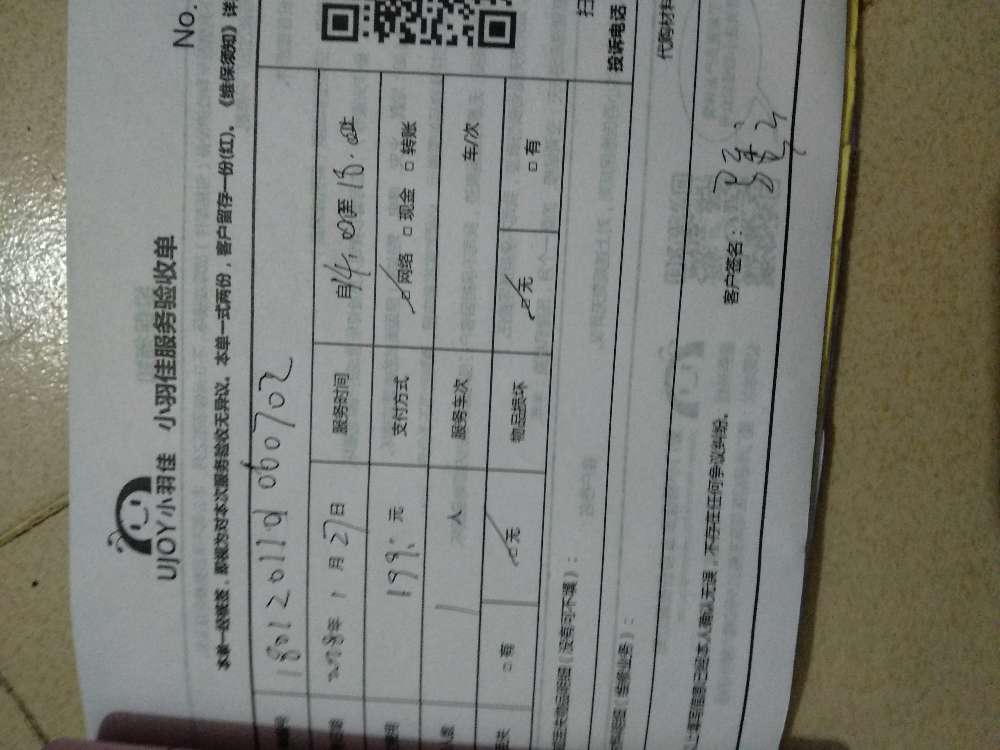 UJOY小羽佳 小羽佳服务验收单
No.
本单一经核签，即视为对本次服务验收无异议。本单一式两份，客户留存一份(红)。《维保须知》详
1801201190000702
年 1 月 27 日 服务时间 自 14:00 至 18:00 止
199: 元 支付方式 □网络 □现金 □转账
1 人 服务车次 车/次
□有 □无 物品损坏 □无 □有
物品明细（没有可不填）：
明细（维修业务）：
扫
投诉电话
代购材料
以上填写信息已经本人确认无误，不存在任何争议纠纷。 客户签名：